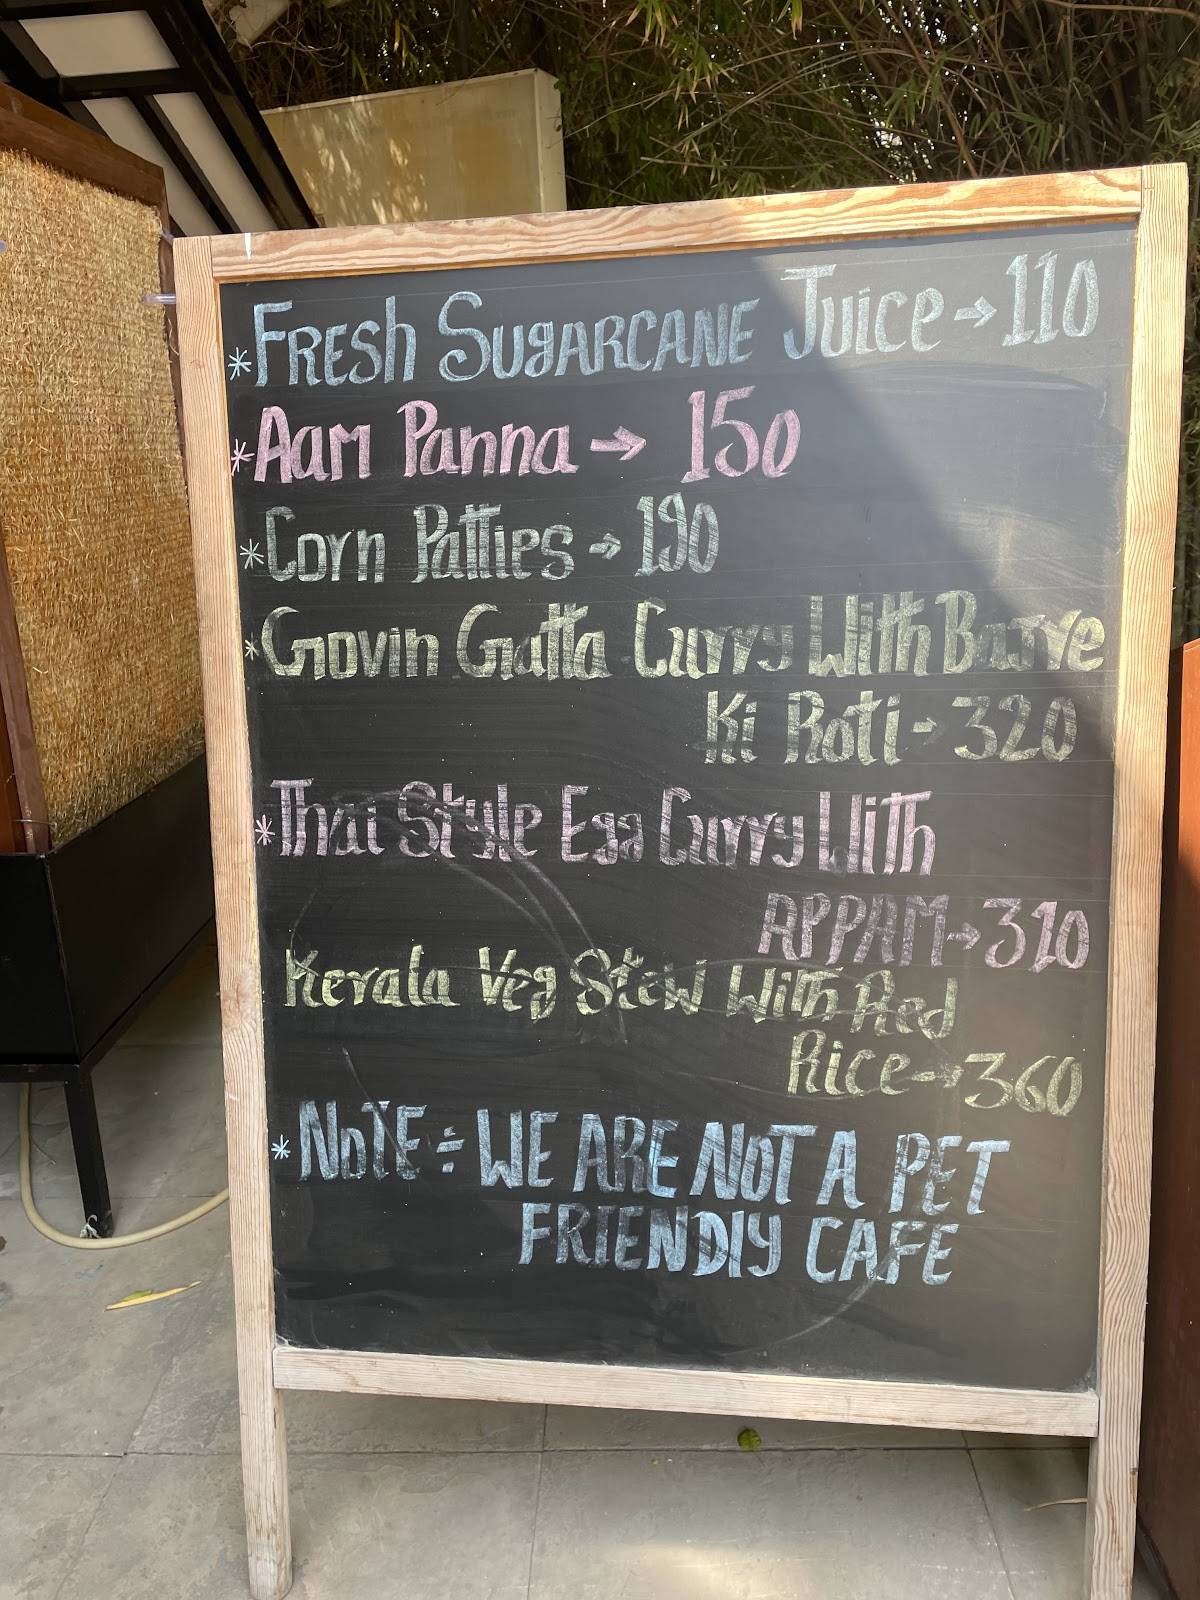 * FRESh SugARCANE Juice → 110
* Aam Panna → 150
* Corn Patties → 190
* Govin Gatta Curry With Bajre
Ki Roti → 320
* Thai Style Egg Curry With
APPAM → 310
Kerala Veg Stew With Red
Rice → 360
* NoTE ÷ WE ARE NOT A PET
FRIENDlY CAFE